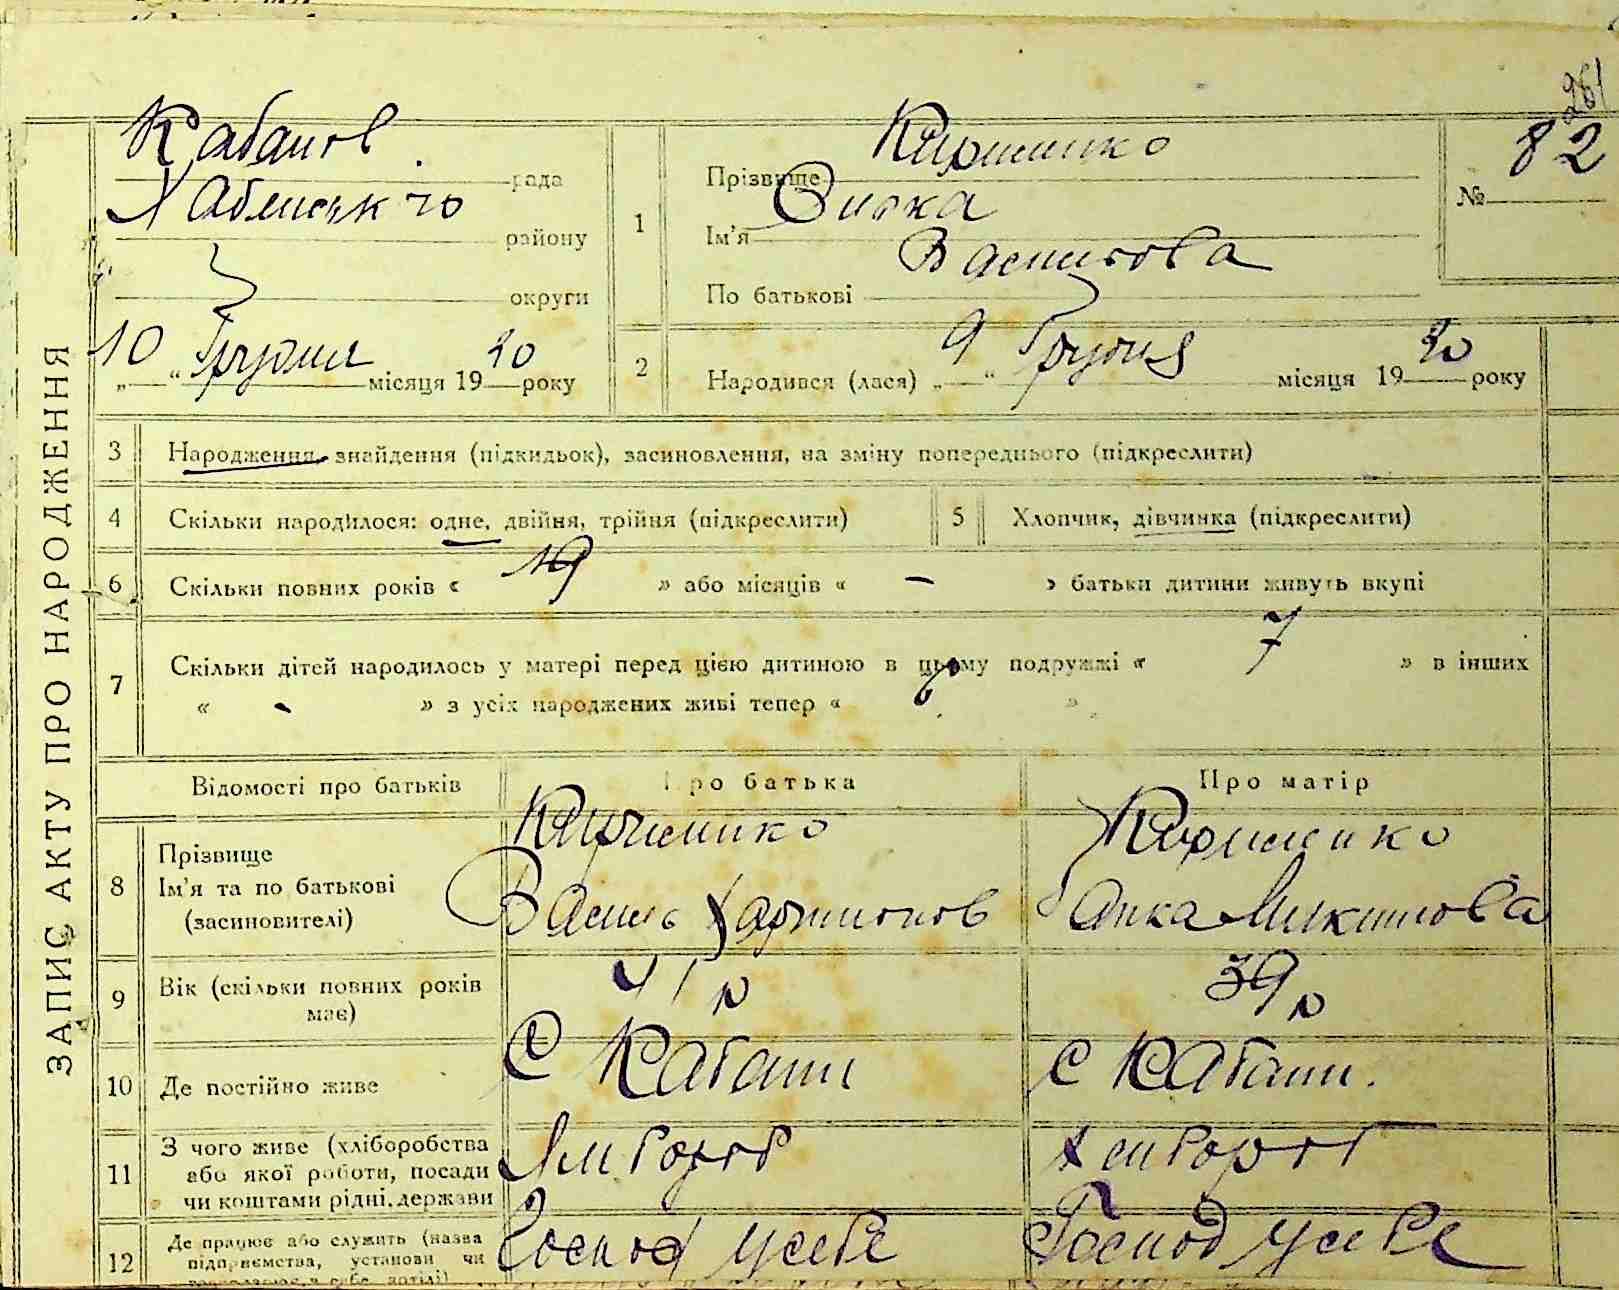 261
82
№
Кабанов
рада
Хабенськ го
району
округи
10 Грудня 20
„ “ місяця 19 року
1
Прізвище
Зинка
Ім’я
Василова
По батькові
2
9 Грудня 20
Народився (лася) „ “ місяця 19 року
ЗАПИС АКТУ ПРО НАРОДЖЕННЯ
3 Народження, знайдення (підкидьок), засиновлення, на зміну попереднього (підкреслити)
4 Скільки народилося: одне, двійня, трійня (підкреслити)
5 Хлопчик, дівчинка (підкреслити)
6 Скільки повних років « 19 » або місяців « – » батьки дитини живуть вкупі
7 Скільки дітей народилось у матері перед цією дитиною в цьому подружжі « 7 » в інших
« - » з усіх народжених живі тепер « 6 »
Відомості про батьків
Про батька
Про матір
8 Прізвище
Ім’я та по батькові
(засиновителі)
Василь Харитонов
Анка Микитова
9 Вік (скільки повних років
має)
41 р
39 р
10 Де постійно живе
С Кабани
С Кабани.
11 З чого живе (хліборобства
або якої роботи, посади
чи коштами рідні, держави
Хлібороб
Хлібороб
12 Де працює або служить (назва
підприємства, установи чи
Господ у себе
Господ у себе